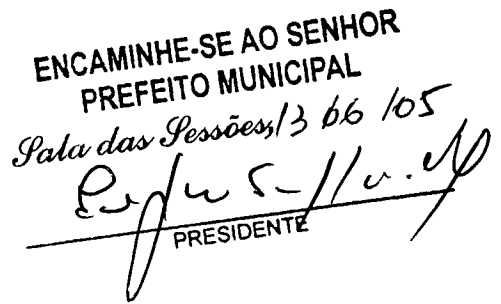 ENCAMINHE-SE AO SENHOR
PREFEITO MUNICIPAL
Sala das Sessões, 13 06 /05
PRESIDENTE